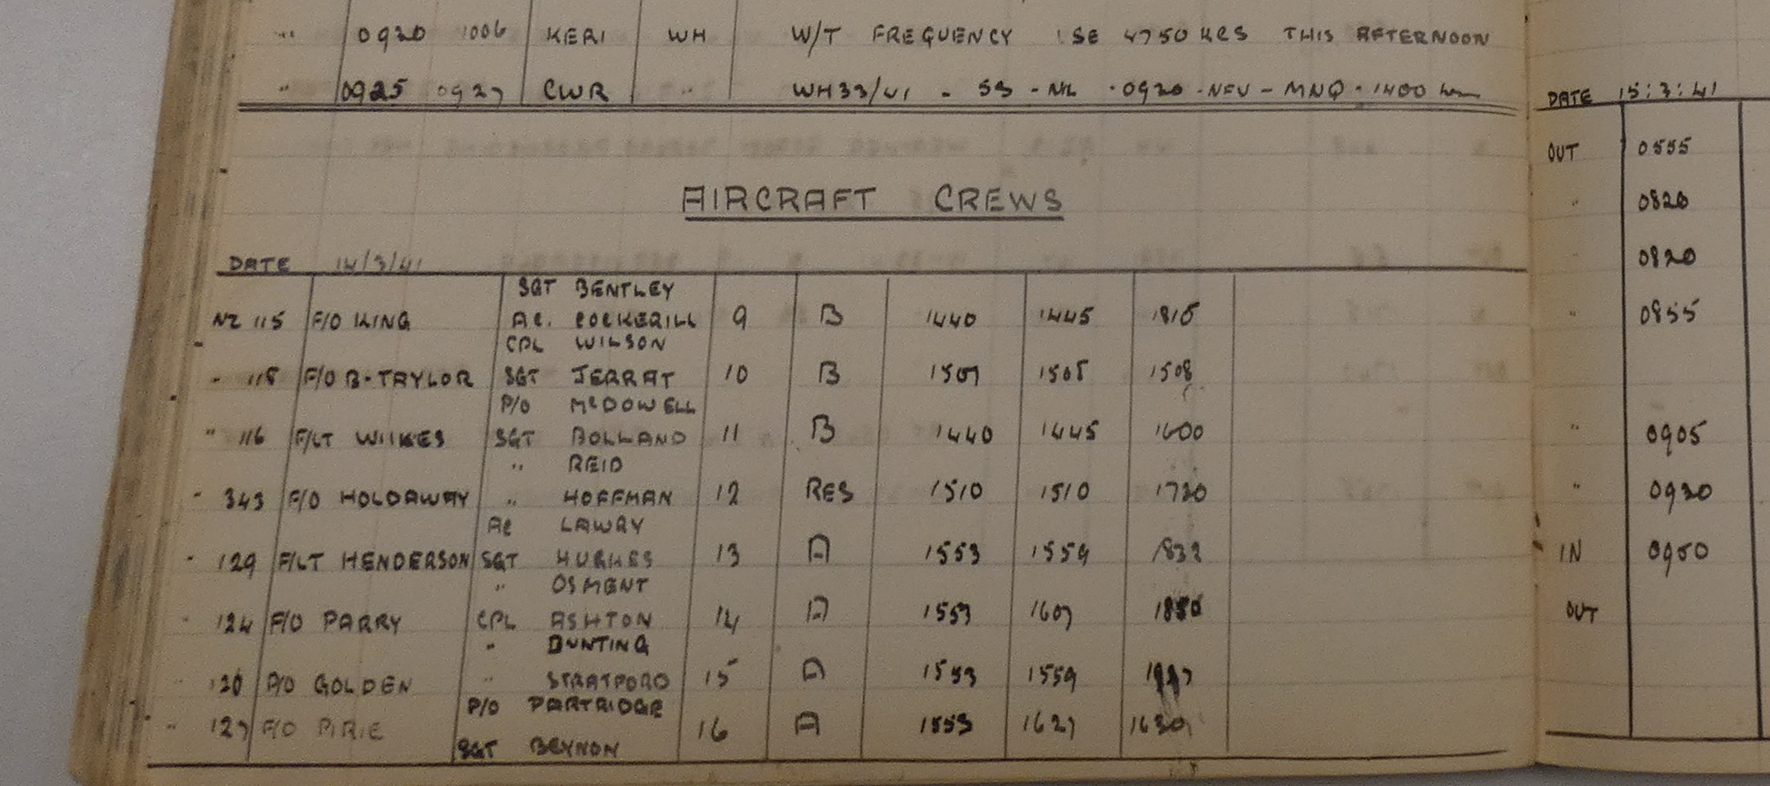 " 0920 1006 KERI WH W/T FREQUENCY USE 4750 KCS THIS AFTERNOON
" 0925 0927 CWR " WH33/41 - 53 - NIL - 0920 - NFU - MNQ - 1400
AIRCRAFT CREWS
DATE 14/3/41
SGT BENTLEY
NZ 115 F/O KING AC. COCKERILL 9 B 1440 1445 1815
CPL WILSON
" 118 F/O B-TAYLOR SGT JERRAT 10 B 1507 1508
P/O McDOWELL
" 116 F/LT WILKES SGT BOLLAND 11 B 1440 1445 1600
" REID
" 343 F/O HOLDAWAY " HOFFMAN 12 RES 1510 1510 1720
AC LAWRY
" 129 F/LT HENDERSON SGT HUGHES 13 A 1553 1559 1832
" OSMENT
" 124 F/O PARRY CPL ASHTON 14 A 1553 1607
" BUNTING
" 120 P/O GOLDEN " STRATFORD 15 A 1553 1559
P/O PARTRIDGE
" 127 F/O PIRIE 16 A 1553 1627 1630
SGT BEYNON
DATE 15:3:41
OUT 0555
" 0820
0820
" 0855
" 0905
" 0920
IN 0950
OUT